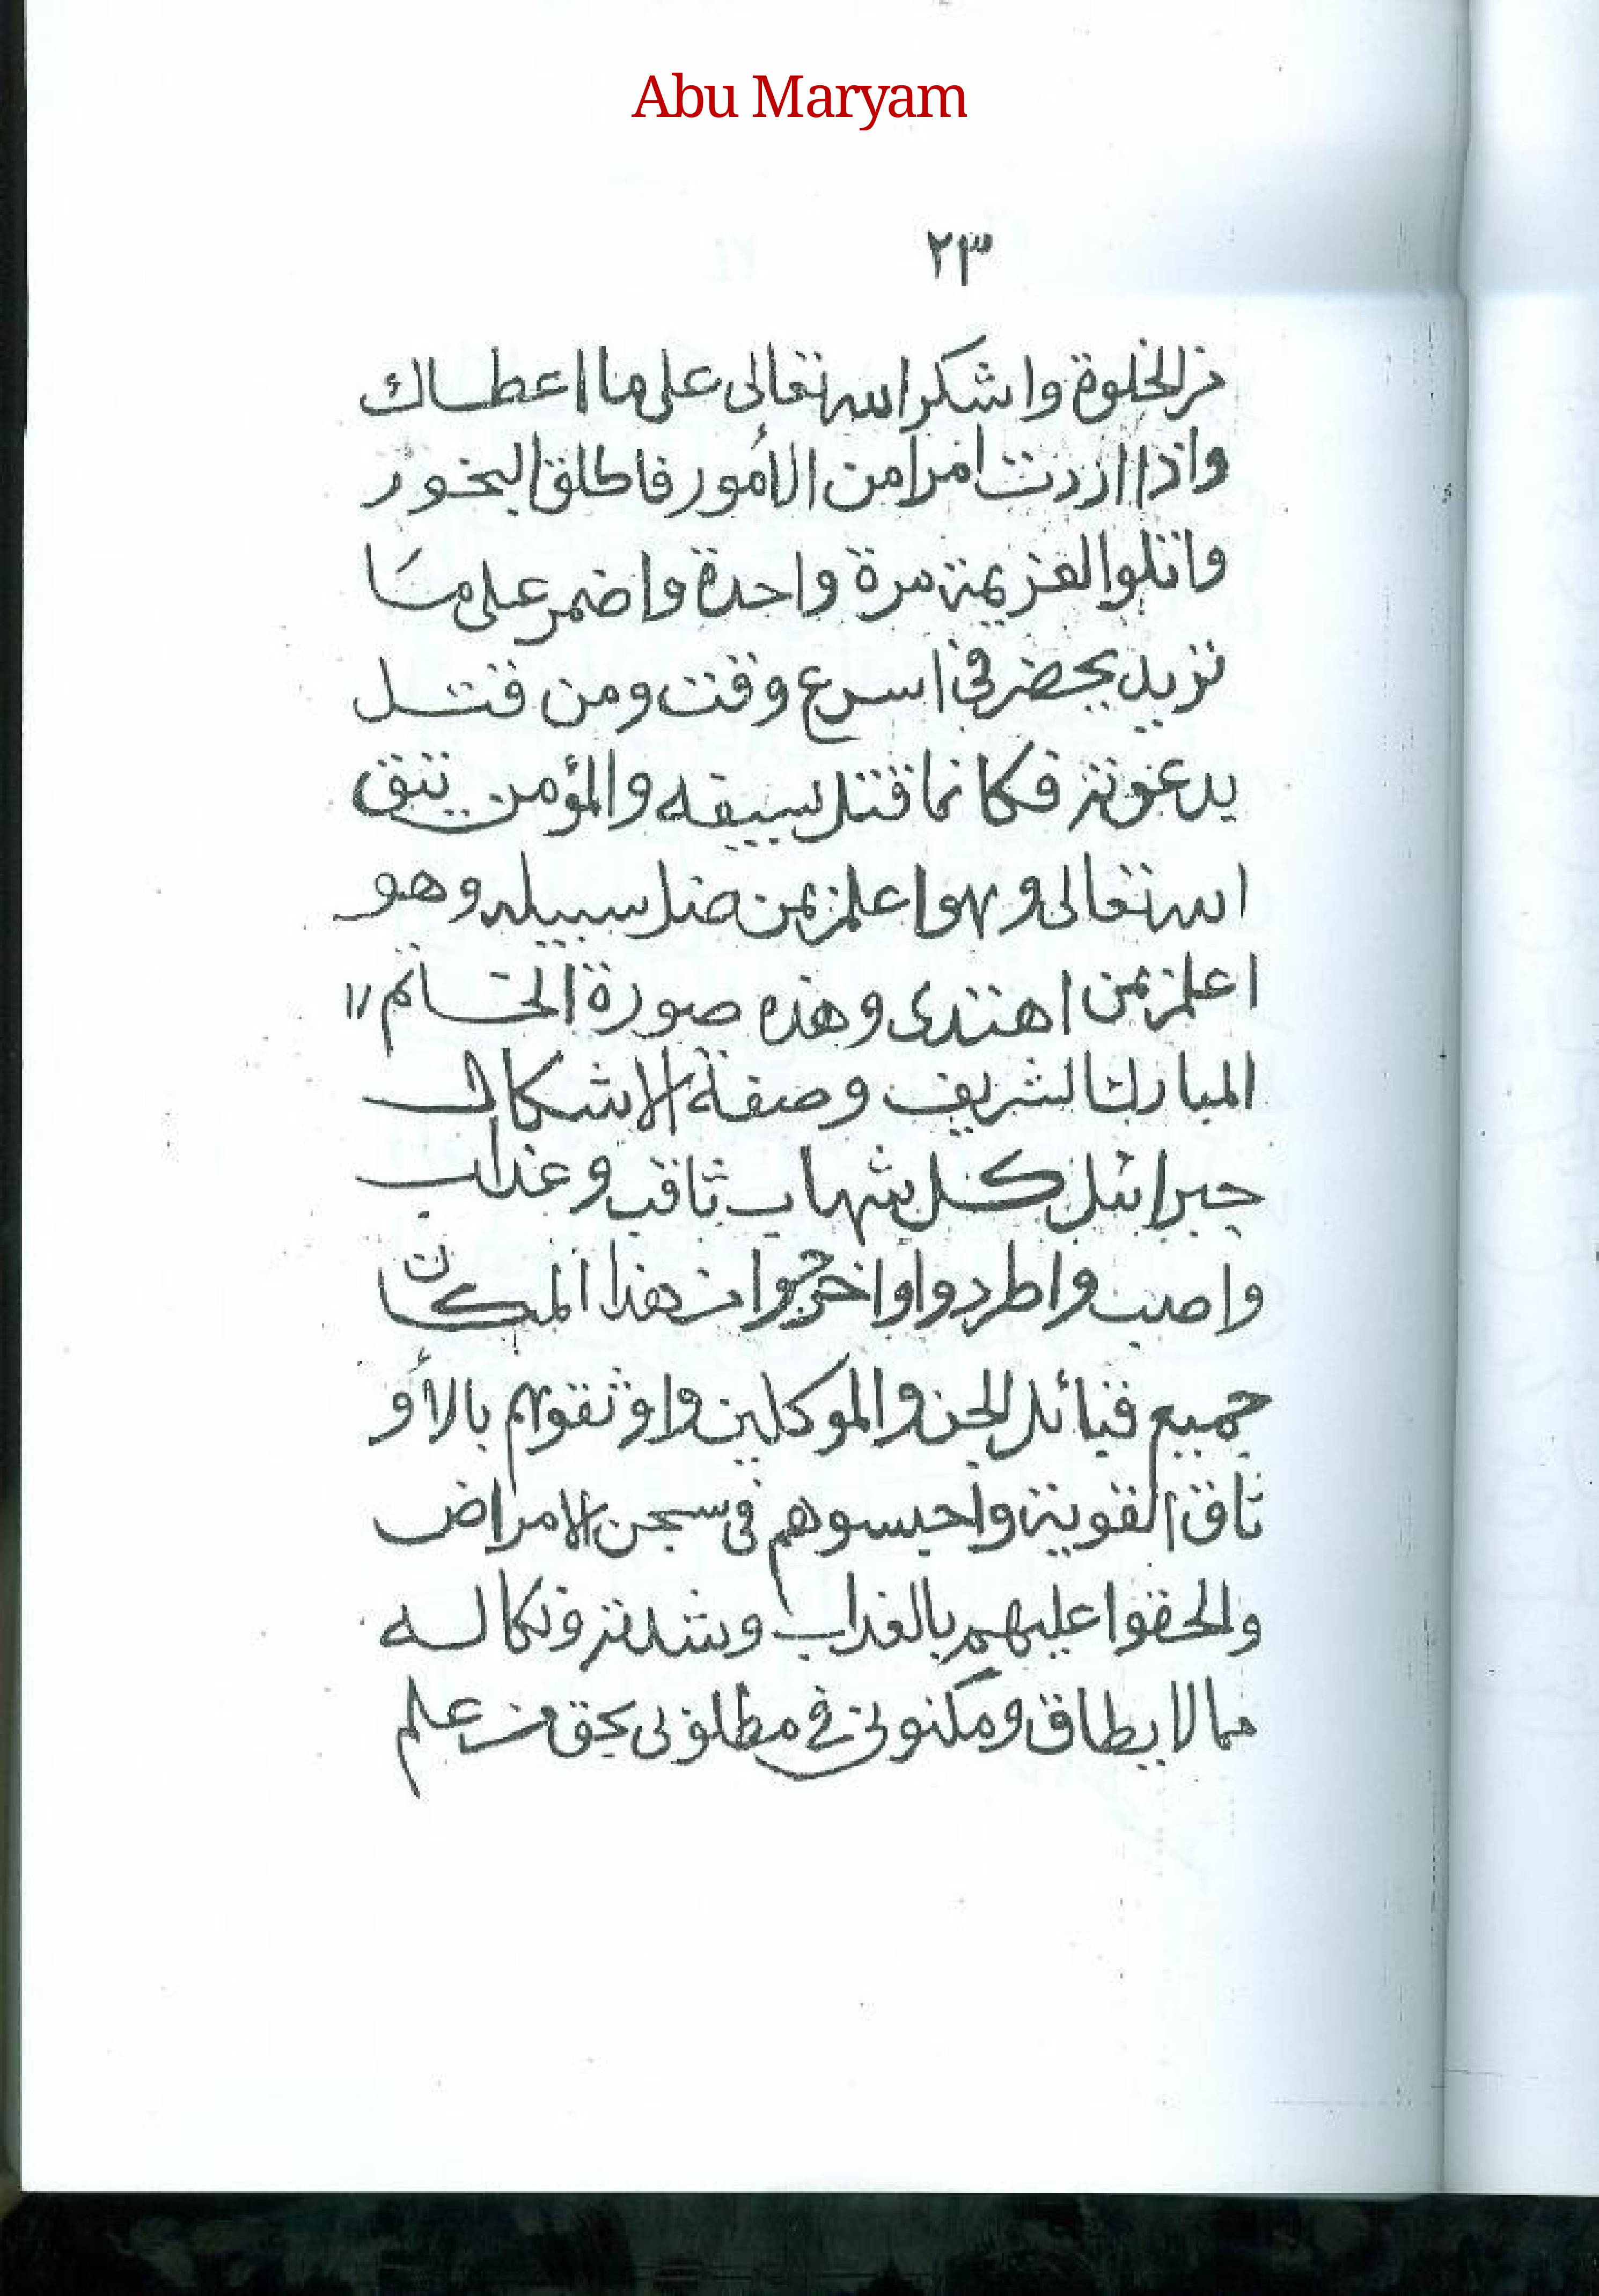 Abu Maryam
٢٣
من الخلوة واشكر الله تعالى على ما اعطاك
واذا اردت امرا من الأمور فاطلق البخور
واتلوا العزيمة مرة واحدة واضمر على ما
تريد يحضر في اسرع وقت ومن قتل
بدعوته فكانما قتل بسيفه والمؤمن يتق
الله تعالى وهوا علم بمن ضل سبيله وهو
اعلم بمن اهتدى وهذه صورة الخاتم
المبارك الشريف وصفة الاشكال
جبرائيل كل شهاب ثاقب وعذاب
واصب واطردوا واخرجوا من هذا المكان
جميع قبائل الجن والموكلين واوثقوهم بالأو
ثاق القوية واحبسوهم في سجن الامراض
والحقوا عليهم بالعذاب وشدته ونكاله
مما لا يطاق ومكنوني في مطلوبي بحق من علم